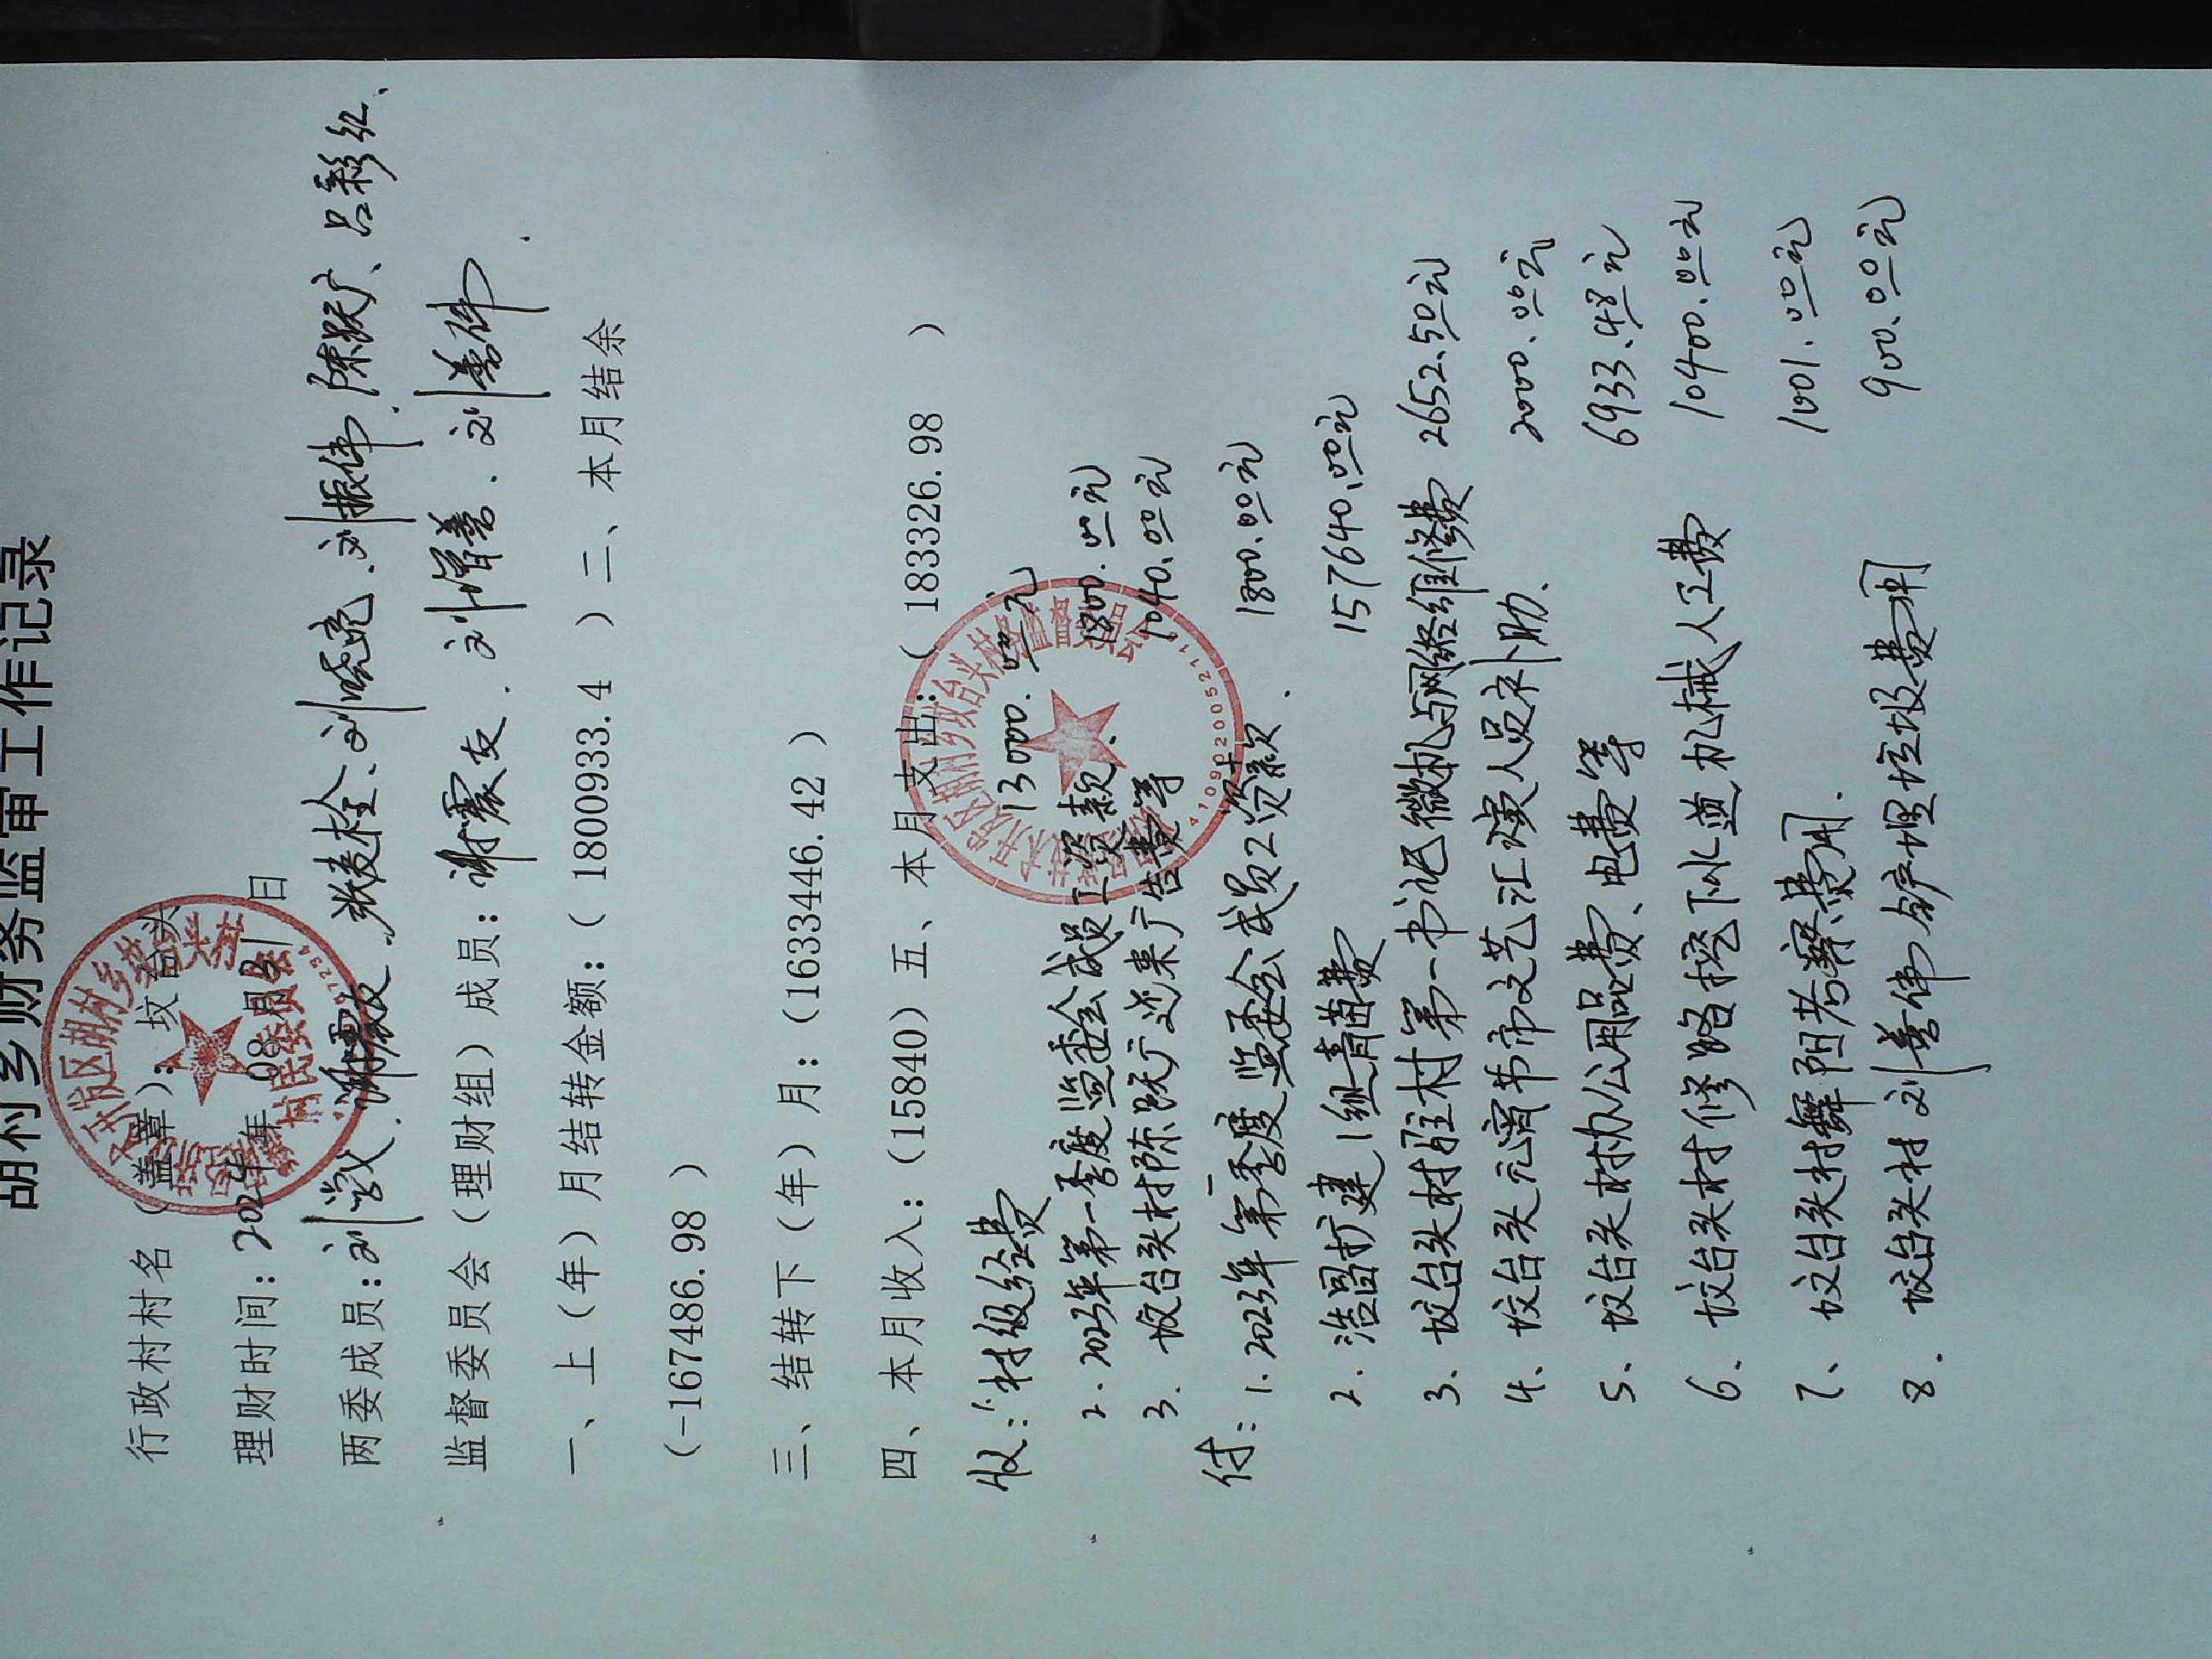 胡村乡财务监审工作记录
行政村村名（盖章）：坟台头
理财时间：2024年 08月31日
两委成员：刘 、谢震友、张麦栓、刘晓亮、刘振伟、陈跃广、吕彩红、
监督委员会（理财组）成员：谢震友、刘增善、刘善伟.
一、上（年）月结转金额：（1800933.4 ）二、本月结余
（-167486.98 ）
三、结转下（年）月：（1633446.42 ）
四、本月收入：（15840）五、本月支出：（183326.98 ）
收：1.村级经费 13000.00元
2.2023年第一季度监委会成员工资款. 1800.00元
3.坟台头村陈跃广交来广告费等 1040.00元
付：1.2023年第一季度监委会成员工资款. 1800.00元
2.浩园扩建1组青苗费 157640.00元
3.坟台头村驻村第一书记微机与网络维修费 2652.50元
4、坟台头元宵节市文艺汇演人员补助. 2000.00元
5、坟台头村办公用品费、电费等 6933.48元
6.坟台头村修路挖下水道机械人工费 10400.00元
7、坟台头村舞阳考察费用. 1001.00元
8.坟台头村刘善伟铲埋垃圾费用 900.00元
4109020052111